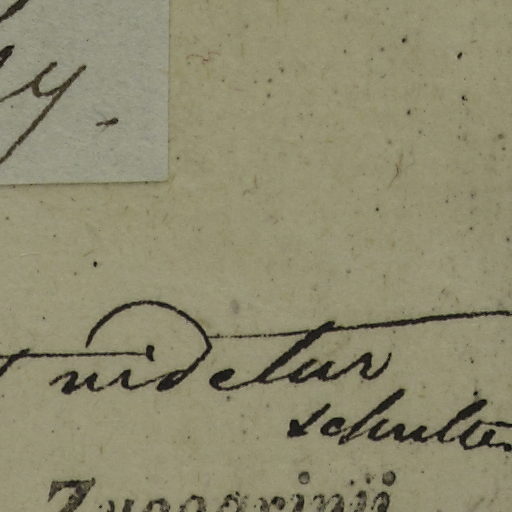 y.
videtur
schultes
Zuccarinii